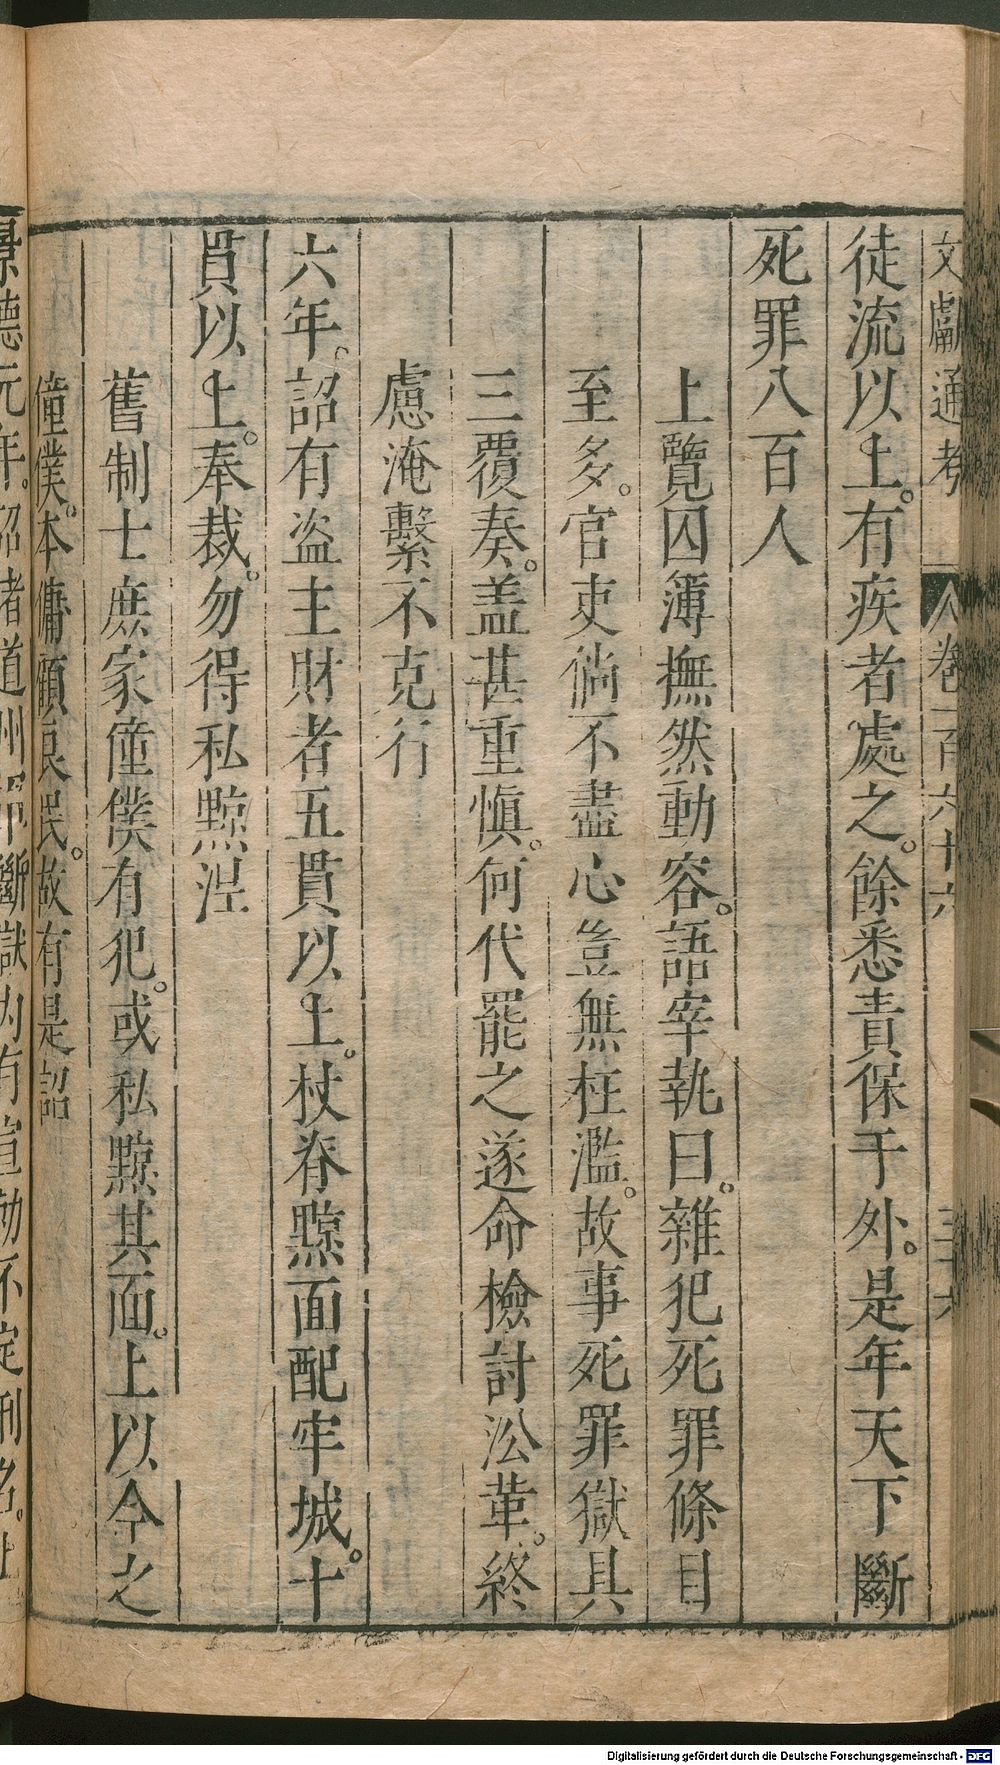 文獻通考 卷一百六十六 三十六
徒流以上。有疾者處之。餘悉責保于外。是年天下斷
死罪八百人
上覽囚簿撫然動容。語宰執曰。雜犯死罪條目
至多。官吏倘不盡心豈無枉濫。故事死罪獄具
三覆奏。盖甚重慎。何代罷之遂命檢討沿革。終
慮淹繫不克行
六年。詔有盜主財者五貫以上。杖脊黥面配牢城。十
貫以上。奉裁。勿得私黥涅
舊制士庶家僮僕有犯。或私黥其面。上以今之
僮僕。本傭顧良民。故有是詔
景德元年。詔諸道州軍斷獄內有宣勅不定刑名。止
Digitalisierung gefördert durch die Deutsche Forschungsgemeinschaft - DFG